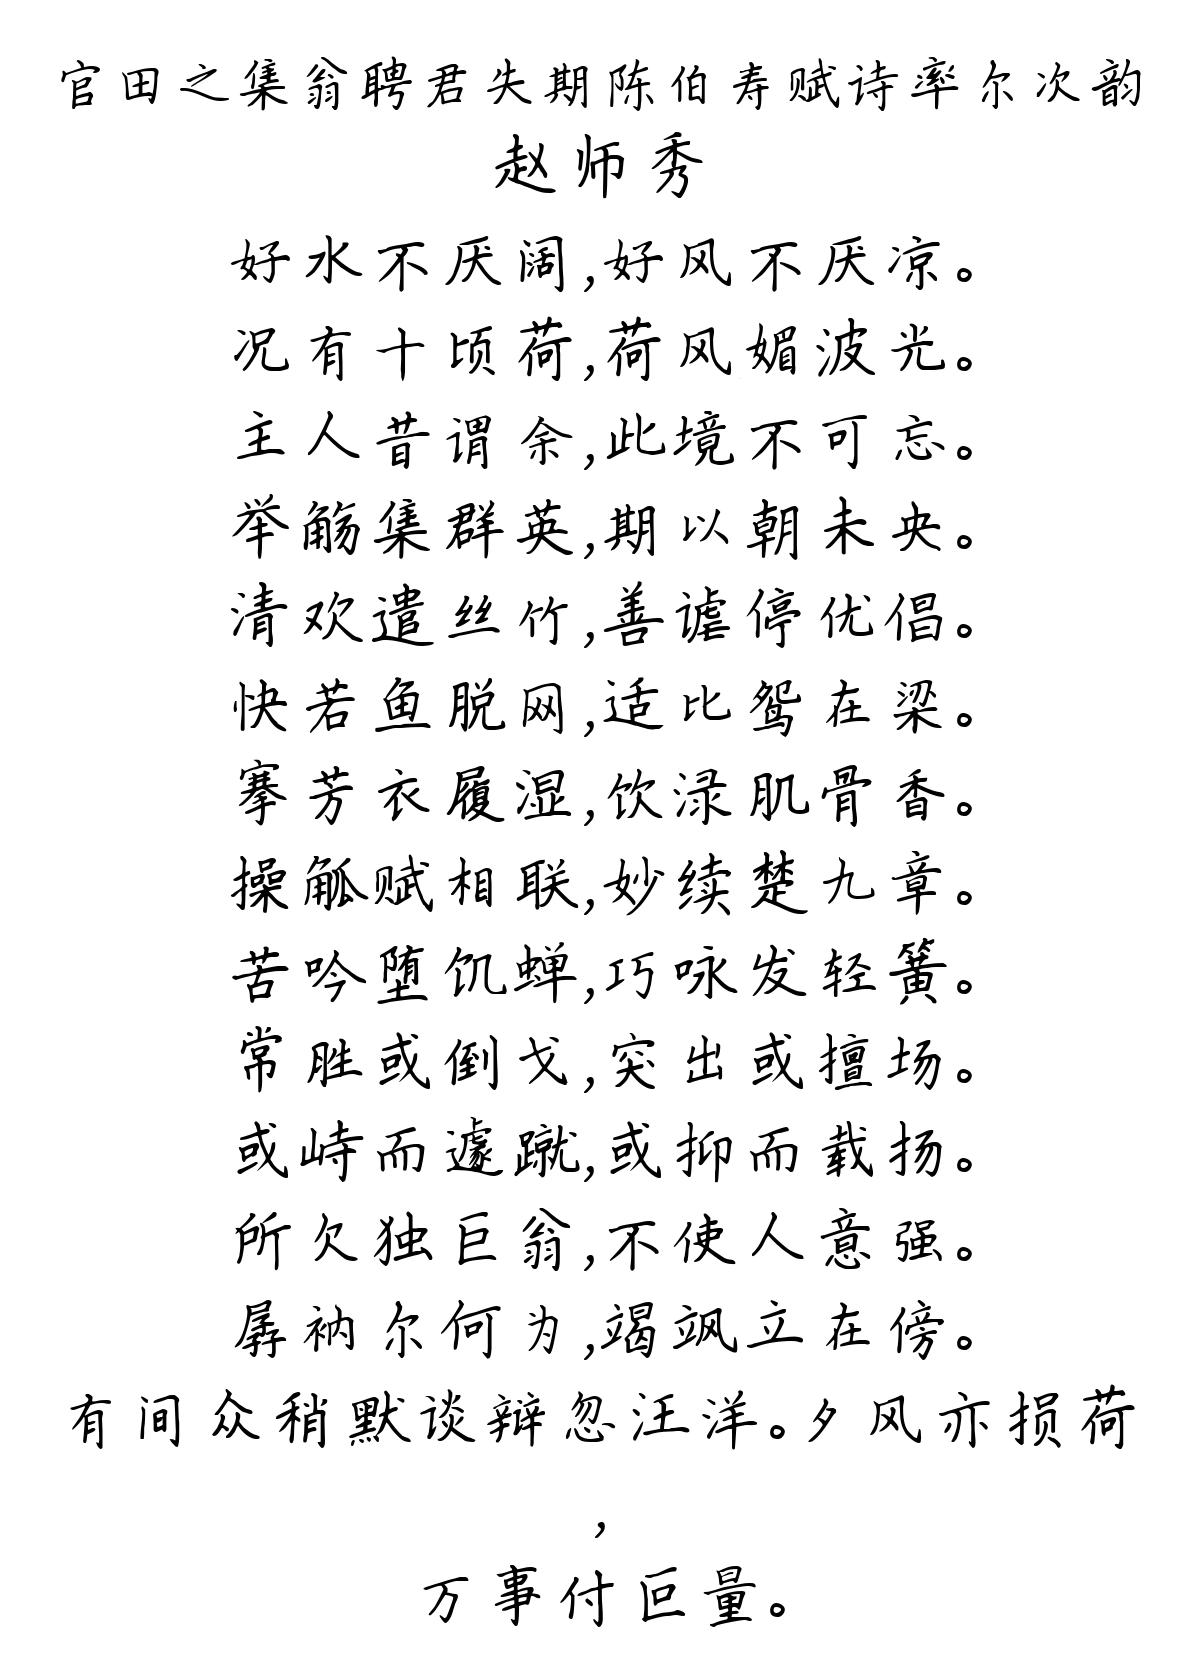 官田之集翁聘君失期陈伯寿赋诗率尔次韵
赵师秀
好水不厌阔,好风不厌凉。
况有十顷荷,荷风媚波光。
主人昔谓余,此境不可忘。
举觞集群英,期以朝未央。
清欢遣丝竹,善谑停优倡。
快若鱼脱网,适比鸳在梁。
搴芳衣履湿,饮渌肌骨香。
操觚赋相联,妙续楚九章。
苦吟堕饥蝉,巧咏发轻簧。
常胜或倒戈,突出或擅场。
或峙而遽蹴,或抑而载扬。
所欠独巨翁,不使人意强。
孱衲尔何为,竭飒立在傍。
有间众稍默谈辩忽汪洋。夕风亦损荷
,
万事付叵量。